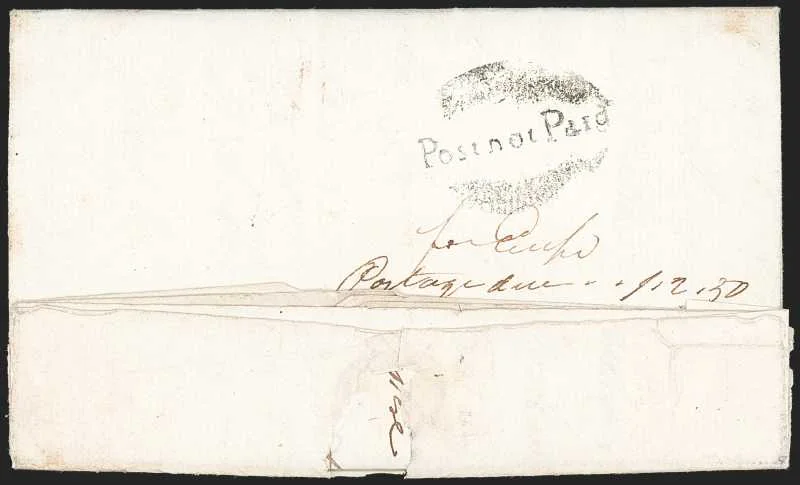 Post not Paid
for
Postage due - - 1.2.50